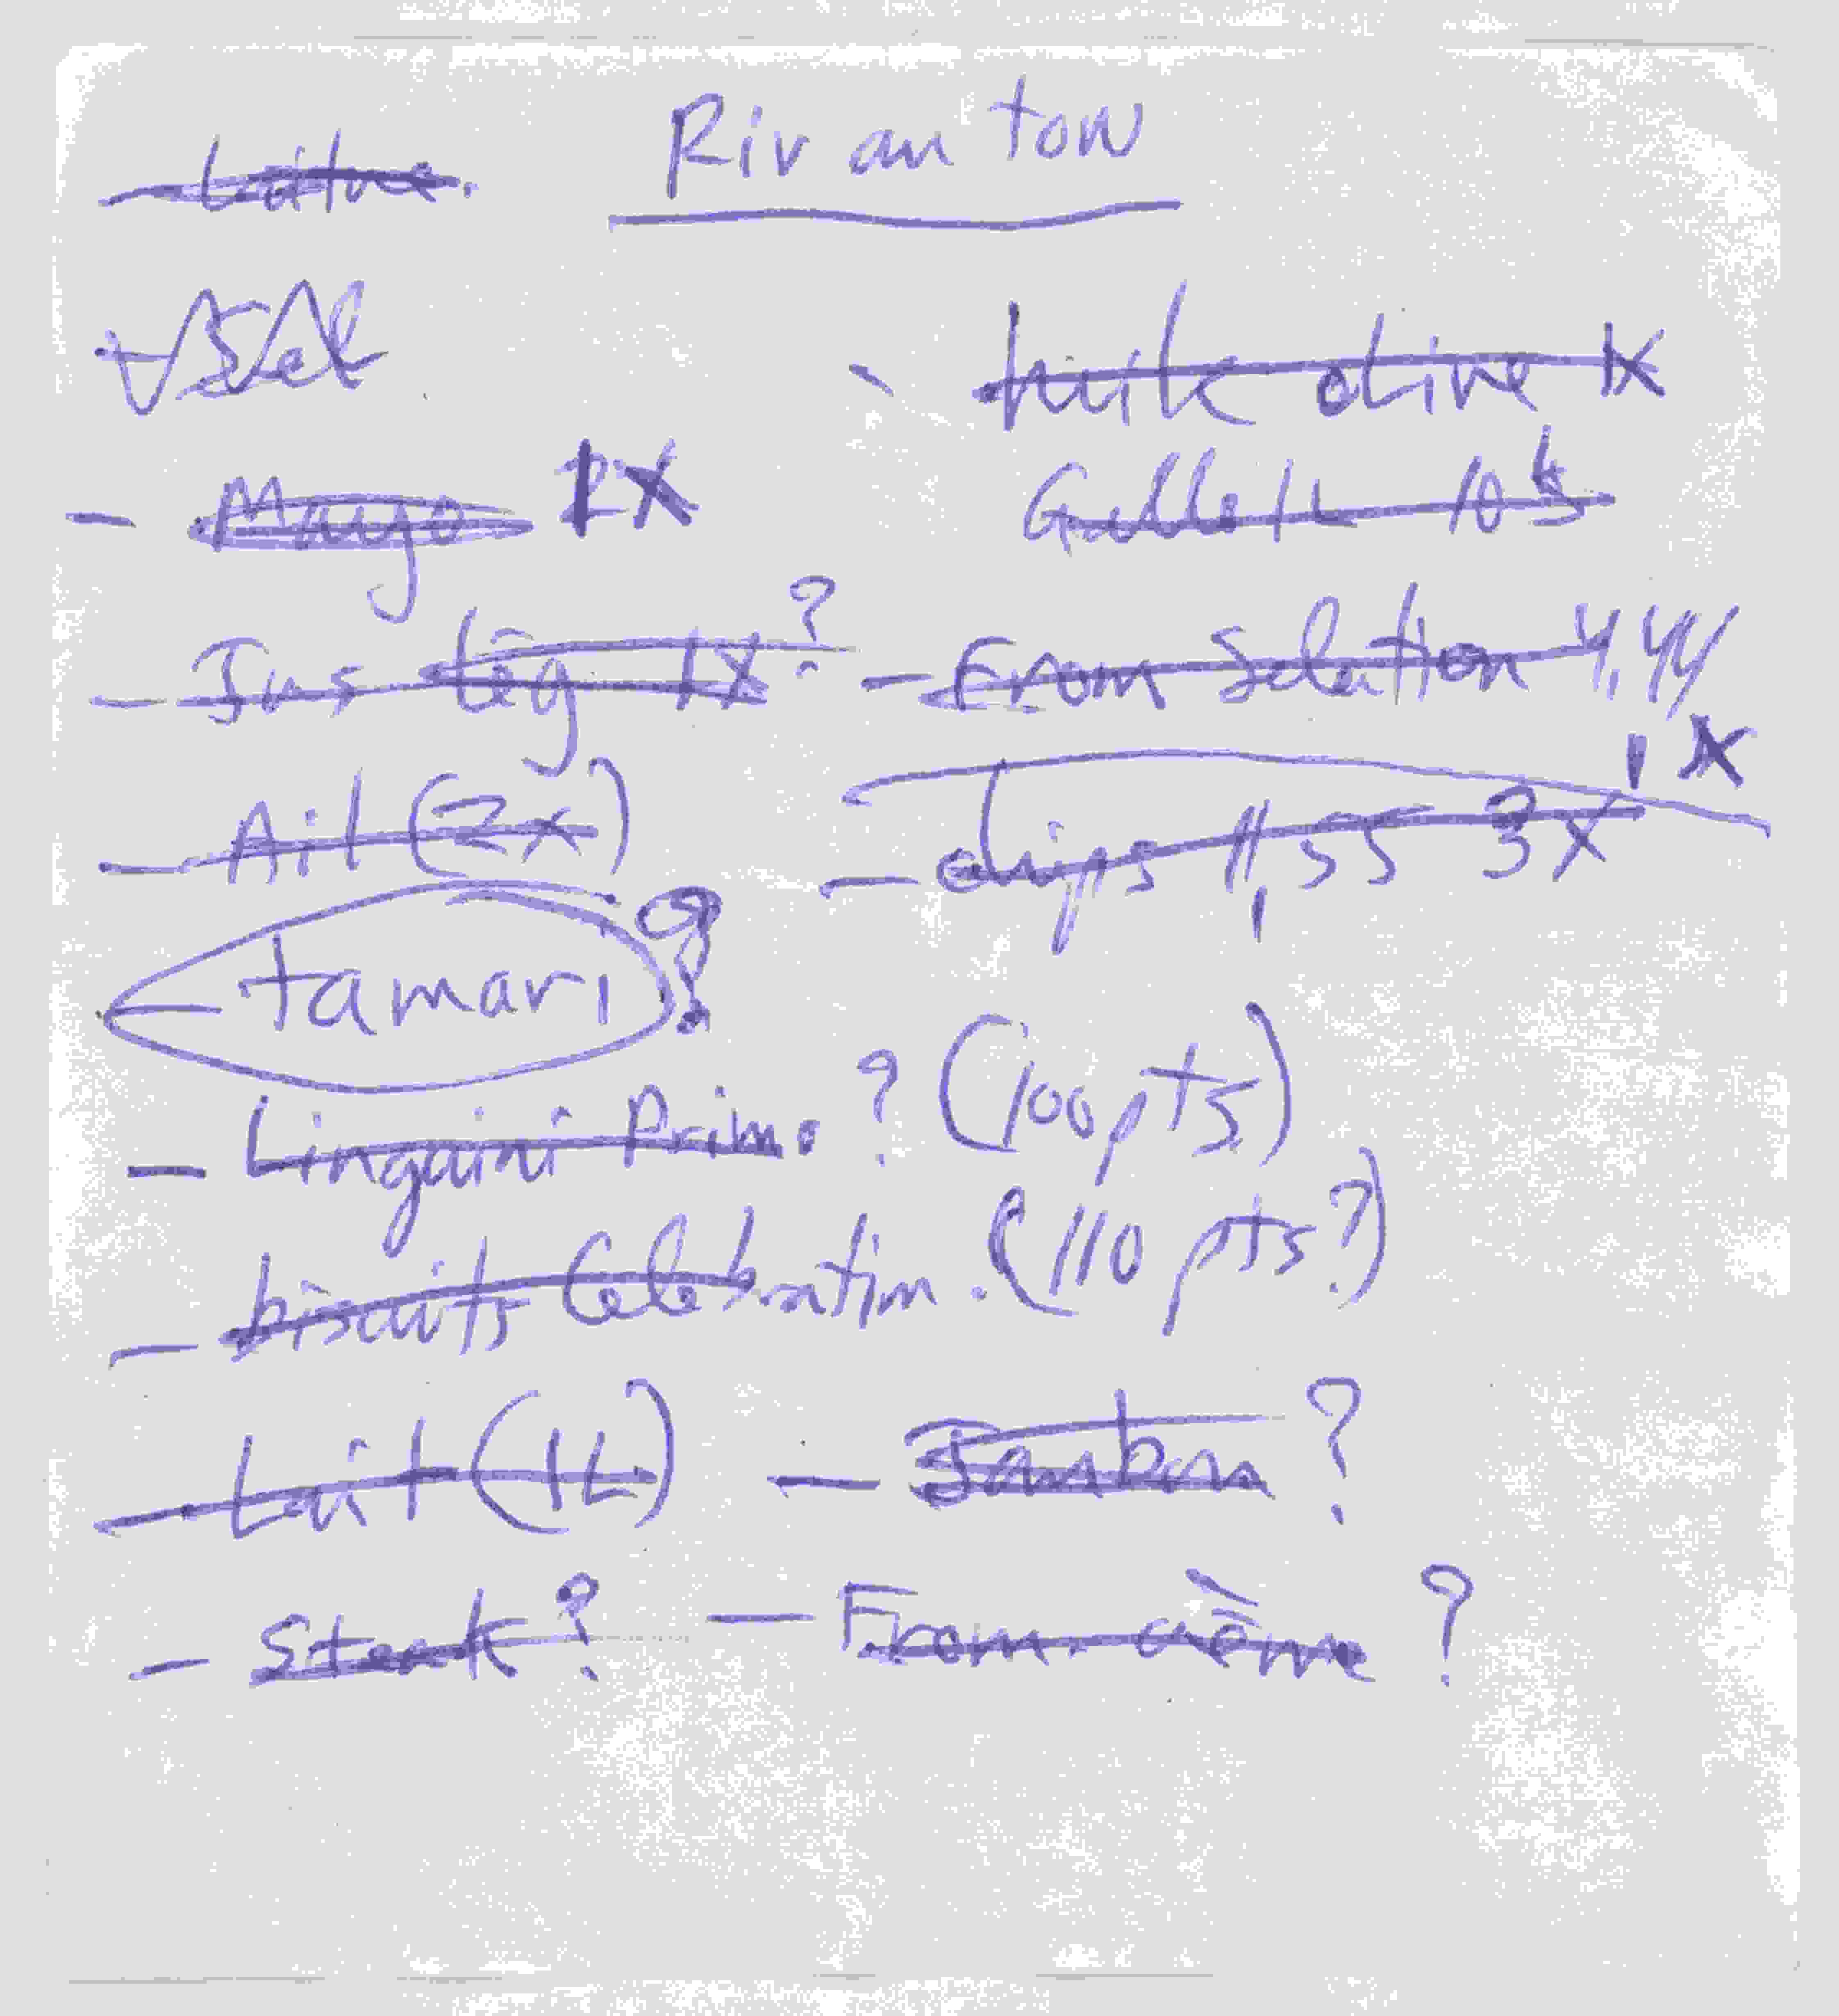 Riv an ton
Laitue.
Sel
- huile olive 1X
- Mayo 1X
10 $
- Jus lég 1X ?
- From Selection 4,44
1X
- Ail (2x)
- chips 11,55 3X
- tamari ?
- Linguini Primo ? (100 pts)
- biscuits Celebration. (110 pts ?)
- Lait (1L) - Jambon ?
- Steak ? - From. crème ?